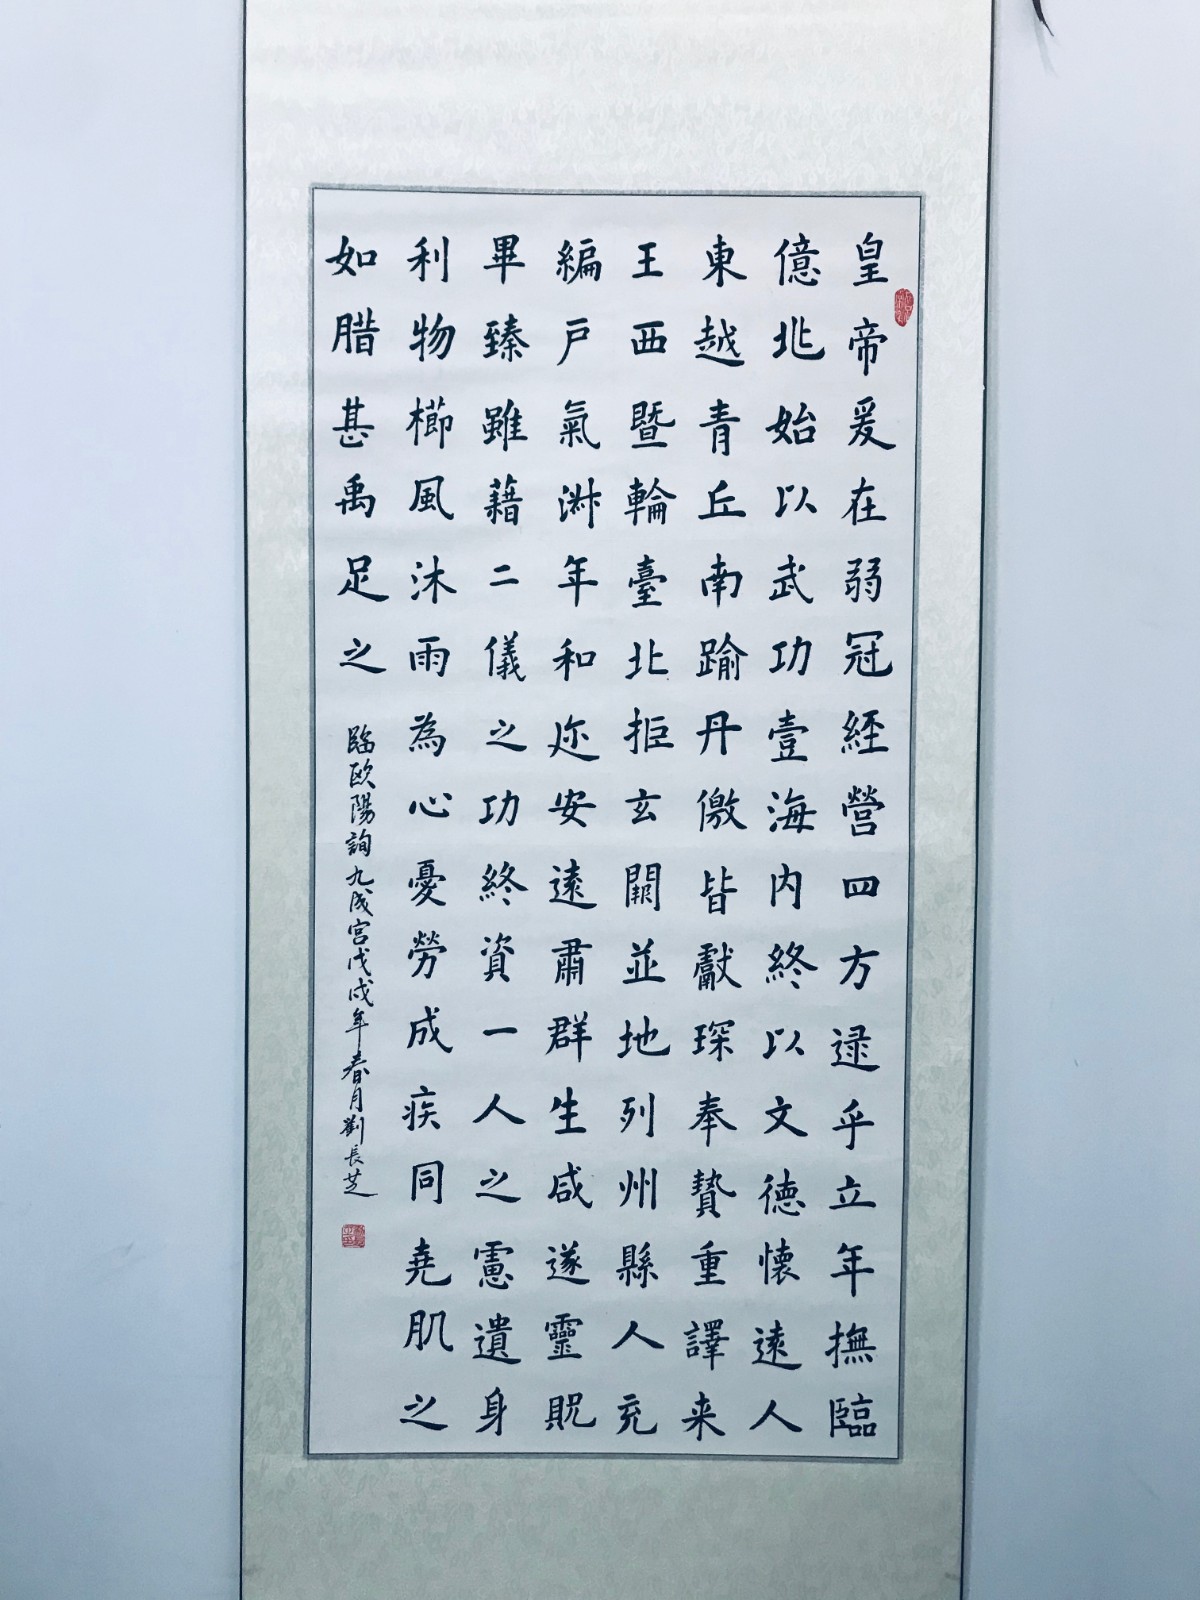 皇帝爰在弱冠經營四方逮乎立年撫臨
億兆始以武功壹海內終以文德懷遠人
東越青丘南踰丹儌皆獻琛奉贄重譯来
王西暨輪臺北拒玄闕並地列州縣人充
編戶氣淋年和迩安遠肅群生咸遂靈貺
畢臻雖藉二儀之功終資一人之慮遺身
利物櫛風沐雨為心憂勞成疾同堯肌之
如腊甚禹足之
臨歐陽詢九成宮戊戌年春月劉長芝